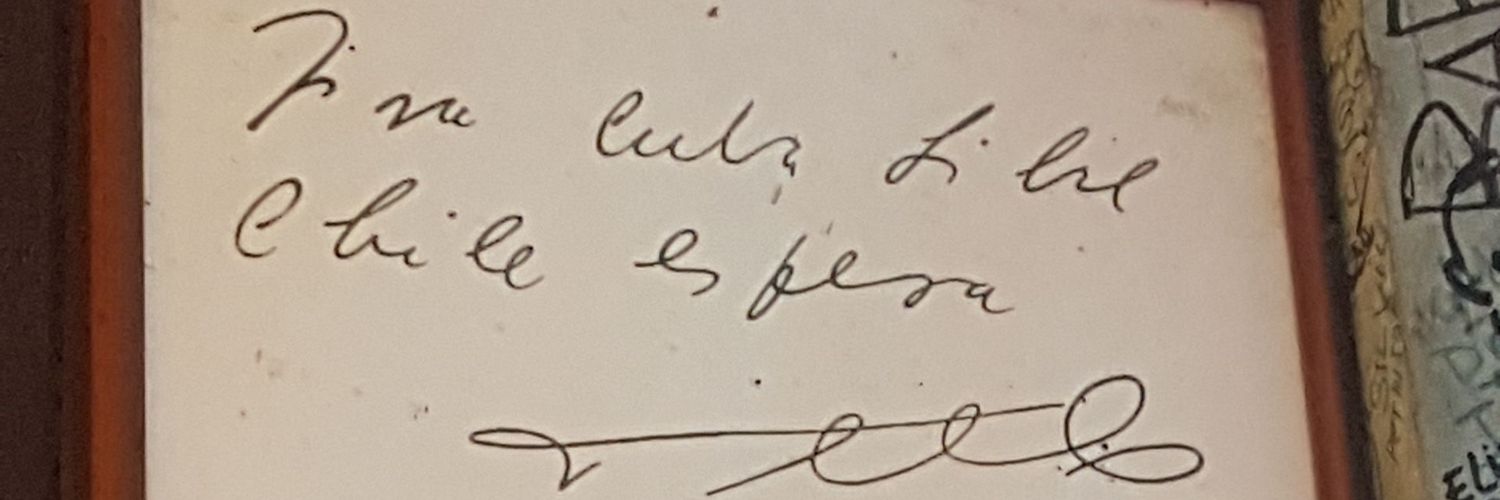 Viva Cuba Libre
Chile espera